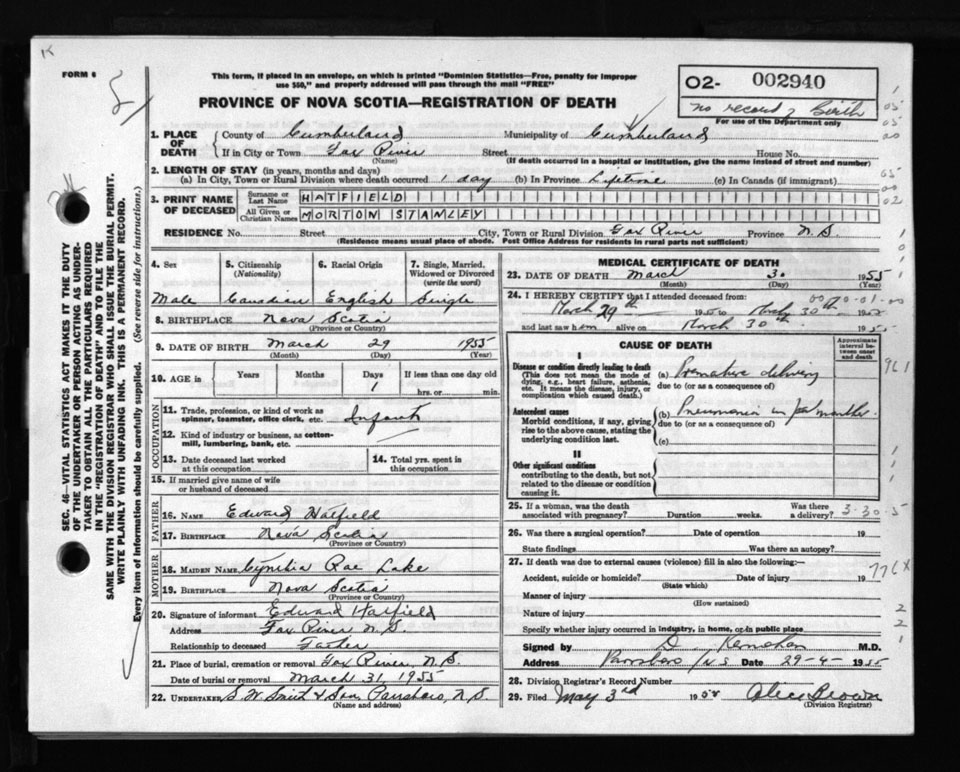 K
FORM 6
This form, if placed in an envelope, on which is printed "Dominion Statistics—Free, penalty for improper
use $50," and properly addressed will pass through the mail "FREE"
PROVINCE OF NOVA SCOTIA—REGISTRATION OF DEATH
02- 002940
no record of Birth
For use of the Department only
SEC. 46—VITAL STATISTICS ACT MAKES IT THE DUTY
OF THE UNDERTAKER OR PERSON ACTING AS UNDER-
TAKER TO OBTAIN ALL THE PARTICULARS REQUIRED
IN THE "REGISTRATION OF DEATH" AND TO FILE THE
SAME WITH THE DIVISION REGISTRAR WHO SHALL ISSUE THE BURIAL PERMIT.
WRITE PLAINLY WITH UNFADING INK. THIS IS A PERMANENT RECORD.
Every item of information should be carefully supplied. (See reverse side for instructions.)
1. PLACE OF DEATH
County of Cumberland Municipality of Cumberland
If in City or Town Fox River Street House No.
(Name) (If death occurred in a hospital or institution, give the name instead of street and number)
2. LENGTH OF STAY (in years, months and days)
(a) In City, Town or Rural Division where death occurred 1 day (b) In Province Lifetime (c) In Canada (if immigrant)
3. PRINT NAME OF DECEASED
Surname or Last Name HATFIELD
All Given or Christian Names MORTON STANLEY
RESIDENCE No. Street City, Town or Rural Division Fox River Province N.S.
(Residence means usual place of abode. Post Office Address for residents in rural parts not sufficient)
4. Sex
5. Citizenship (Nationality)
6. Racial Origin
7. Single, Married, Widowed or Divorced (write the word)
Male Canadian English Single
8. BIRTHPLACE Nova Scotia
(Province or Country)
9. DATE OF BIRTH March 29 1955
(Month) (Day) (Year)
10. AGE in Years Months Days If less than one day old
1 hrs. or min.
OCCUPATION
11. Trade, profession, or kind of work as spinner, teamster, office clerk, etc. Infant
12. Kind of industry or business, as cotton-mill, lumbering, bank, etc.
13. Date deceased last worked at this occupation
14. Total yrs. spent in this occupation
15. If married give name of wife or husband of deceased
FATHER
16. Name Edward Hatfield
17. Birthplace Nova Scotia
(Province or Country)
MOTHER
18. Maiden Name Cynthia Rae Lake
19. Birthplace Nova Scotia
(Province or Country)
20. Signature of informant Edward Hatfield
Address Fox River N.S.
Relationship to deceased Father
21. Place of burial, cremation or removal Fox River, N.S.
Date of burial or removal March 31, 1955
22. UNDERTAKER S. W. Smith & Son, Parrsboro, N.S.
(Name and address)
MEDICAL CERTIFICATE OF DEATH
23. DATE OF DEATH March 30 1955
(Month) (Day)
24. I HEREBY CERTIFY that I attended deceased from:
March 29th 1955 to March 30th 1955
and last saw him alive on March 30th 1955
CAUSE OF DEATH
Approximate interval between onset and death
I
Disease or condition directly leading to death
This does not mean the mode of dying, e.g., heart failure, asthenia, etc. It means the disease, injury, or complication which caused death.
(a) Premature delivery
due to (or as a consequence of)
Antecedent causes
Morbid conditions, if any, giving rise to the above cause, stating the underlying condition last.
(b) Pneumonia in mother
due to (or as a consequence of)
(c)
II
Other significant conditions
contributing to the death, but not related to the disease or condition causing it.
25. If a woman, was the death associated with pregnancy? Duration weeks. Was there a delivery?
3-30-5
26. Was there a surgical operation? Date of operation 19
State findings Was there an autopsy?
27. If death was due to external causes (violence) fill in also the following:—
Accident, suicide or homicide? Date of injury 19
(State which)
776X
Manner of injury
(How sustained)
Nature of injury
Specify whether injury occurred in industry, in home, or in public place
Signed by D. Kernohan M.D.
Address Parrsboro N.S. Date 29-4- 1955
28. Division Registrar's Record Number
29. Filed May 3rd 1955 Alice Brown
(Division Registrar)